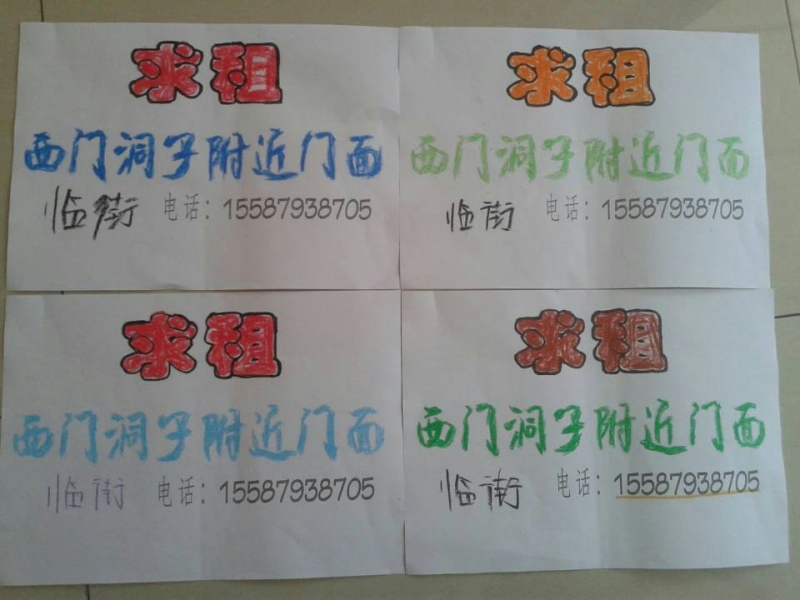 求租
西门洞子附近门面
临街 电话：15587938705
求租
西门洞子附近门面
临街 电话：15587938705
求租
西门洞子附近门面
临街 电话：15587938705
求租
西门洞子附近门面
临街 电话：15587938705